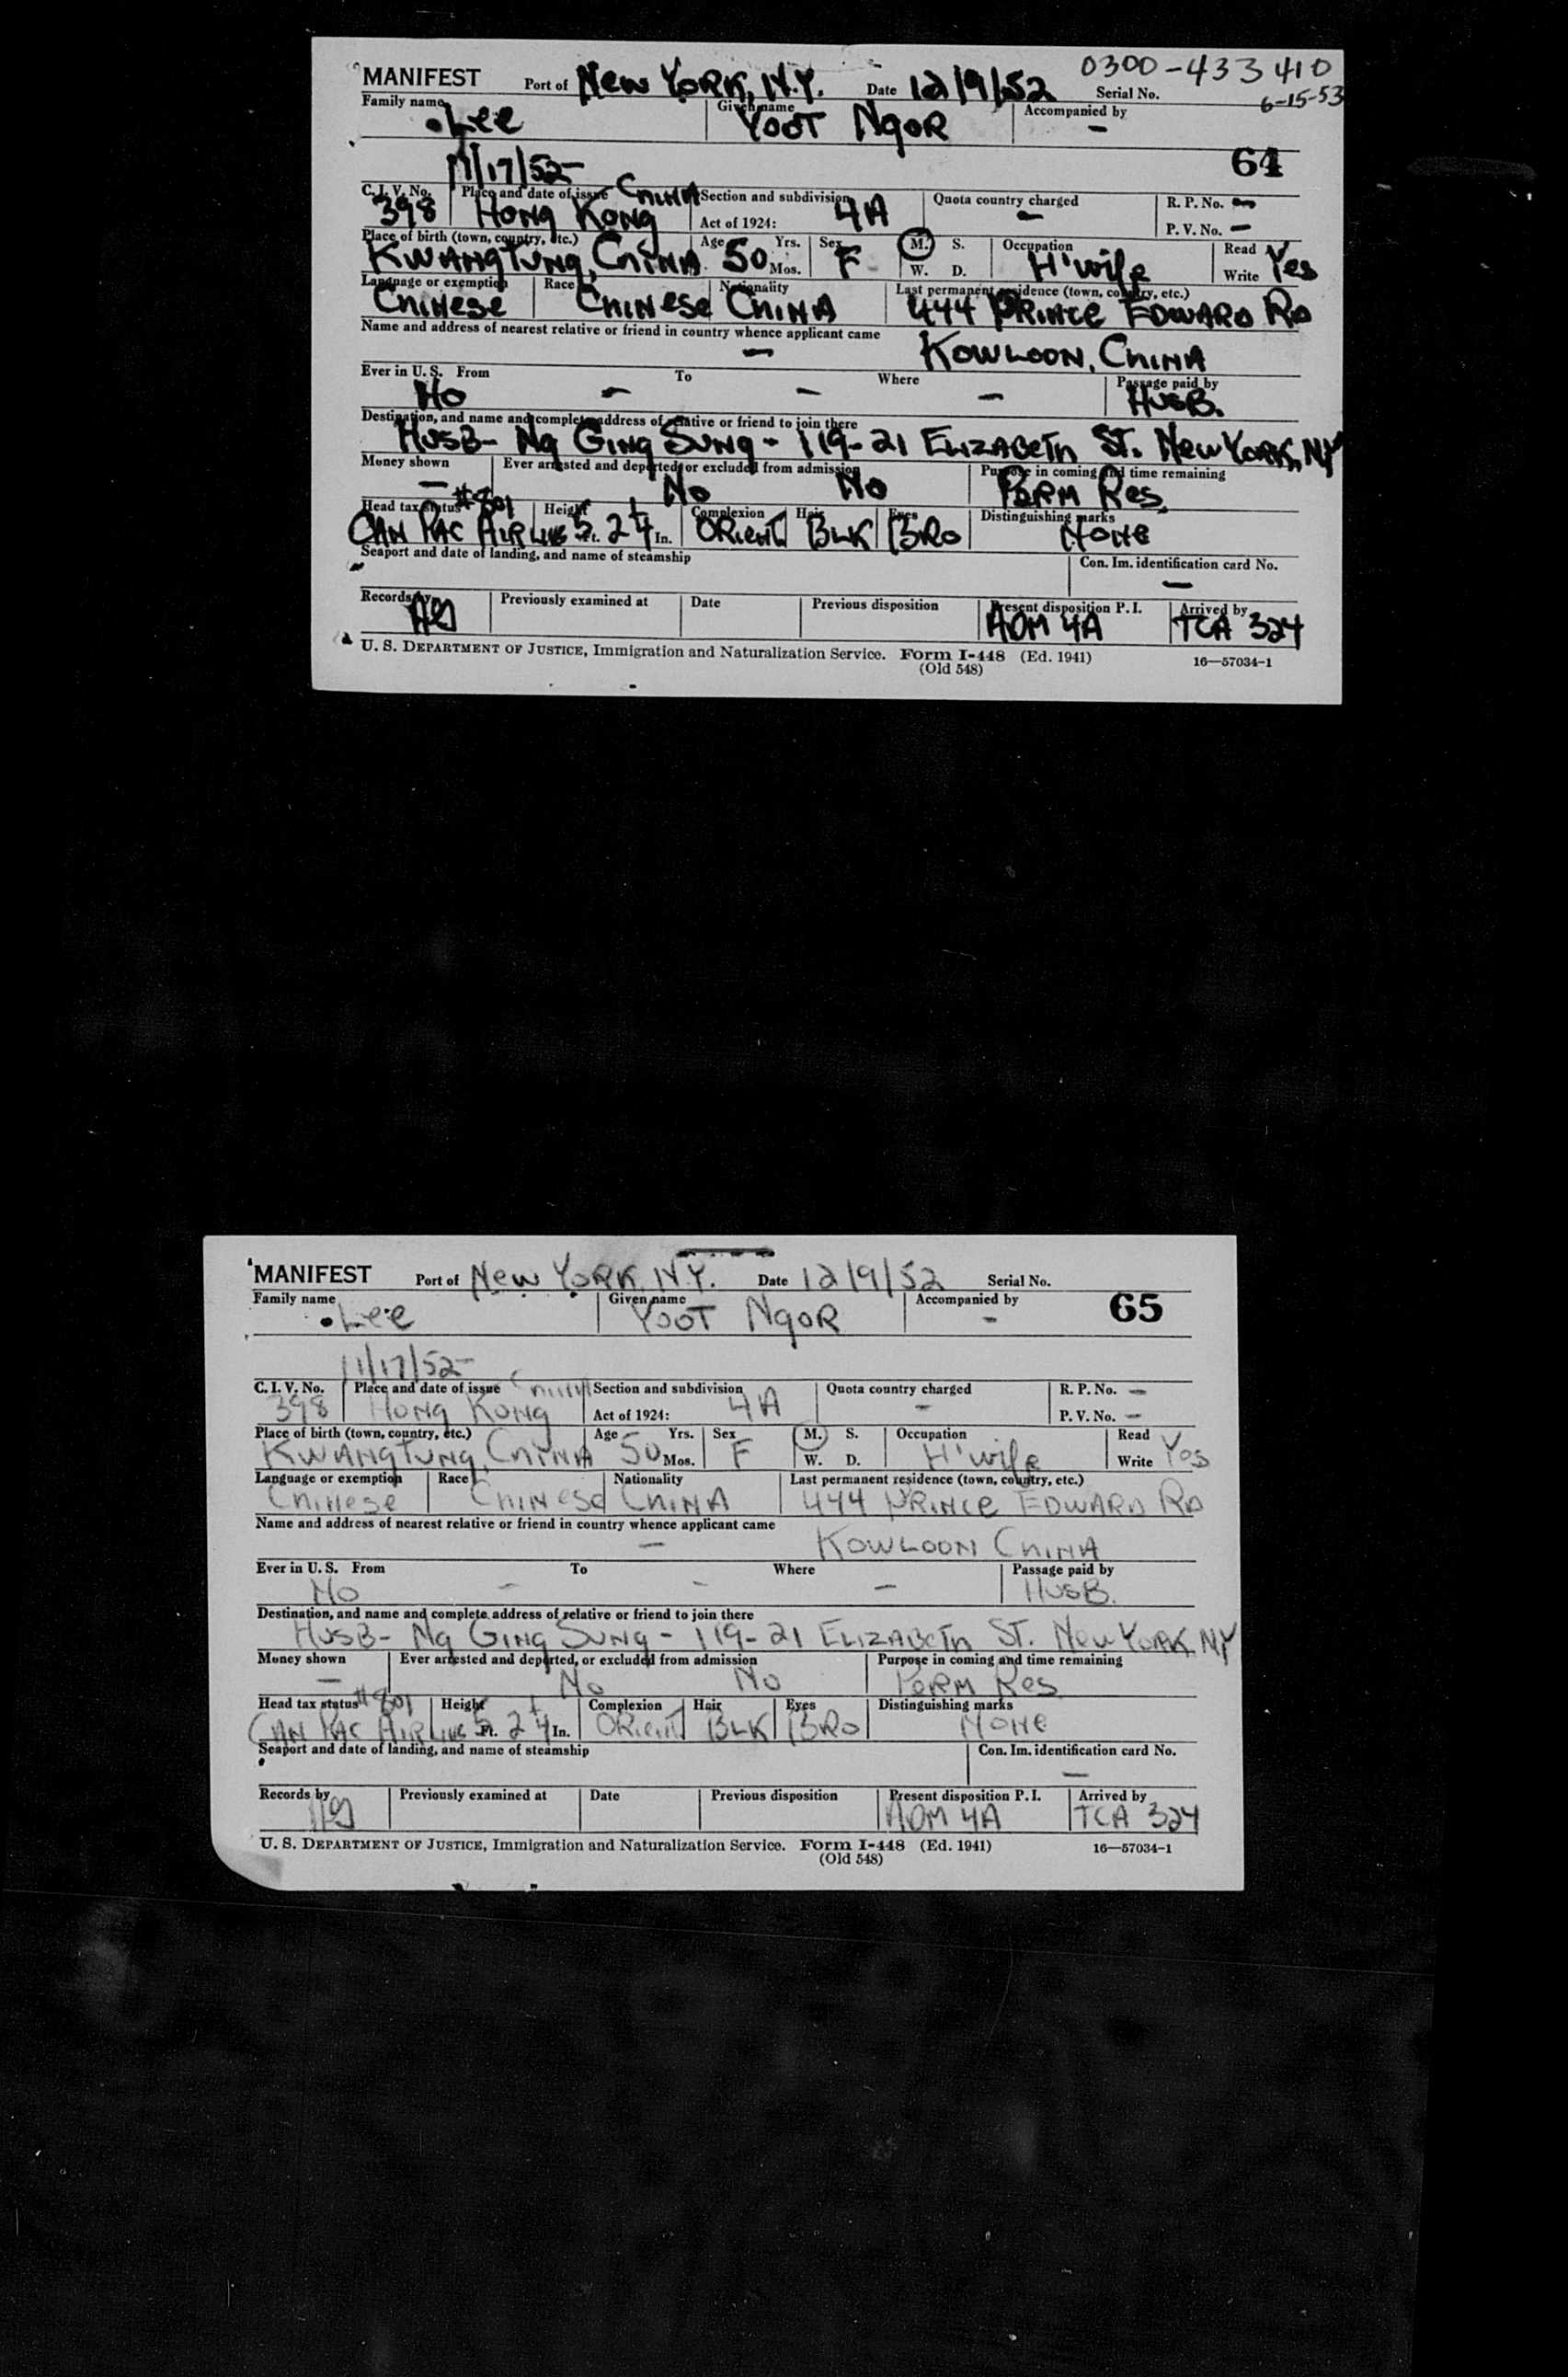 0300-433 410
MANIFEST Port of New York, N.Y. Date 12/9/52 Serial No. 6-15-53
Family name Given name Accompanied by
Lee Yoot Ngor -
64
11/17/52
C. I. V. No. Place and date of issue China Section and subdivision Quota country charged R. P. No. -
398 Hong Kong Act of 1924: 4A - P. V. No. -
Place of birth (town, country, etc.) Age Yrs. Sex M. S. Occupation Read
Kwangtung, China 50 Mos. F W. D. H'wife Write Yes
Language or exemption Race Nationality Last permanent residence (town, country, etc.)
Chinese Chinese China 444 Prince Edward Rd
Name and address of nearest relative or friend in country whence applicant came
- Kowloon, China
Ever in U. S. From To Where Passage paid by
No - - - Husb.
Destination, and name and complete address of relative or friend to join there
Husb- Ng Ging Sung - 119-21 Elizabeth St. New York, NY
Money shown Ever arrested and deported, or excluded from admission Purpose in coming and time remaining
- No No Perm Res.
Head tax status #801 Height Complexion Hair Eyes Distinguishing marks
Can Pac Airlines 5 Ft. 2 1/4 In. Orient Blk Bro None
Seaport and date of landing, and name of steamship Con. Im. identification card No.
-
Records by Previously examined at Date Previous disposition Present disposition P. I. Arrived by
Adm 4A TCA 324
U. S. Department of Justice, Immigration and Naturalization Service. Form I-448 (Ed. 1941) 16—57034-1
(Old 548)
MANIFEST Port of New York, N.Y. Date 12/9/52 Serial No.
Family name Given name Accompanied by 65
Lee Yoot Ngor -
11/17/52
C. I. V. No. Place and date of issue China Section and subdivision Quota country charged R. P. No. -
398 Hong Kong Act of 1924: 4A - P. V. No. -
Place of birth (town, country, etc.) Age Yrs. Sex M. S. Occupation Read
Kwangtung, China 50 Mos. F W. D. H'wife Write Yes
Language or exemption Race Nationality Last permanent residence (town, country, etc.)
Chinese Chinese China 444 Prince Edward Rd
Name and address of nearest relative or friend in country whence applicant came
- Kowloon China
Ever in U. S. From To Where Passage paid by
No - - - Husb.
Destination, and name and complete address of relative or friend to join there
Husb- Ng Ging Sung - 119-21 Elizabeth St. New York, NY
Money shown Ever arrested and deported, or excluded from admission Purpose in coming and time remaining
- No No Perm Res
Head tax status #801 Height Complexion Hair Eyes Distinguishing marks
Can Pac Airlines 5 Ft. 2 1/4 In. Orient Blk Bro None
Seaport and date of landing, and name of steamship Con. Im. identification card No.
-
Records by Previously examined at Date Previous disposition Present disposition P. I. Arrived by
Adm 4A TCA 324
U. S. Department of Justice, Immigration and Naturalization Service. Form I-448 (Ed. 1941) 16—57034-1
(Old 548)